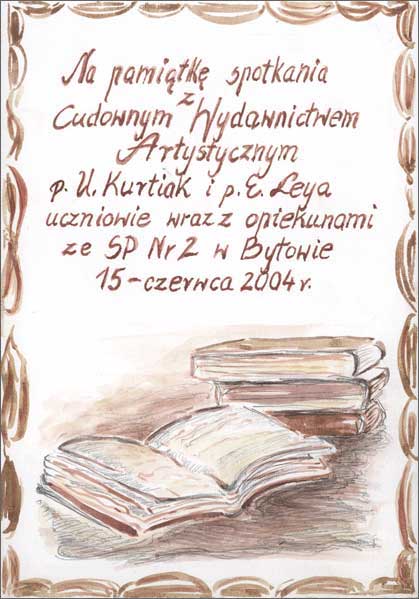 Na pamiątkę spotkania
z
Cudownym Wydawnictwem
Artystycznym
p. U. Kurtiak i p. E. Leya
uczniowie wraz z opiekunami
ze SP Nr 2 w Bytowie
15-czerwca 2004 r.